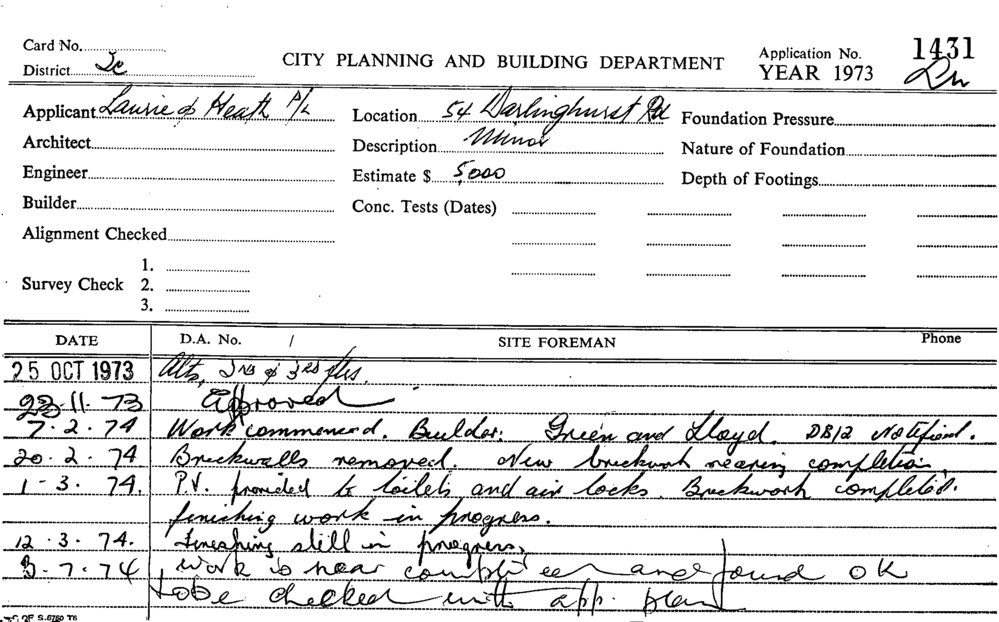 Card No.
District 2c
CITY PLANNING AND BUILDING DEPARTMENT
Application No. 1431
YEAR 1973
Applicant Laurie & Heath P/L
Location 54 Darlinghurst Rd
Foundation Pressure
Architect
Description Minor
Nature of Foundation
Engineer
Estimate $ 5,000
Depth of Footings
Builder
Conc. Tests (Dates)
Alignment Checked
Survey Check
1.
2.
3.
DATE D.A. No. / SITE FOREMAN Phone
25 OCT 1973 Alts, 2nd & 3rd flrs.
23.11.73 Approved
7.2.74 Work commenced. Builder: Green and Lloyd. DB12 Notified.
20.2.74 Brickwalls removed. New brickwork nearing completion,
1-3.74. P.V. provided to toilets and air locks. Brickwork completed.
finishing work in progress.
12.3.74. Finishing still in progress,
3-7.74 work is near and found OK
to be checked with app. plan
S.6760 TS